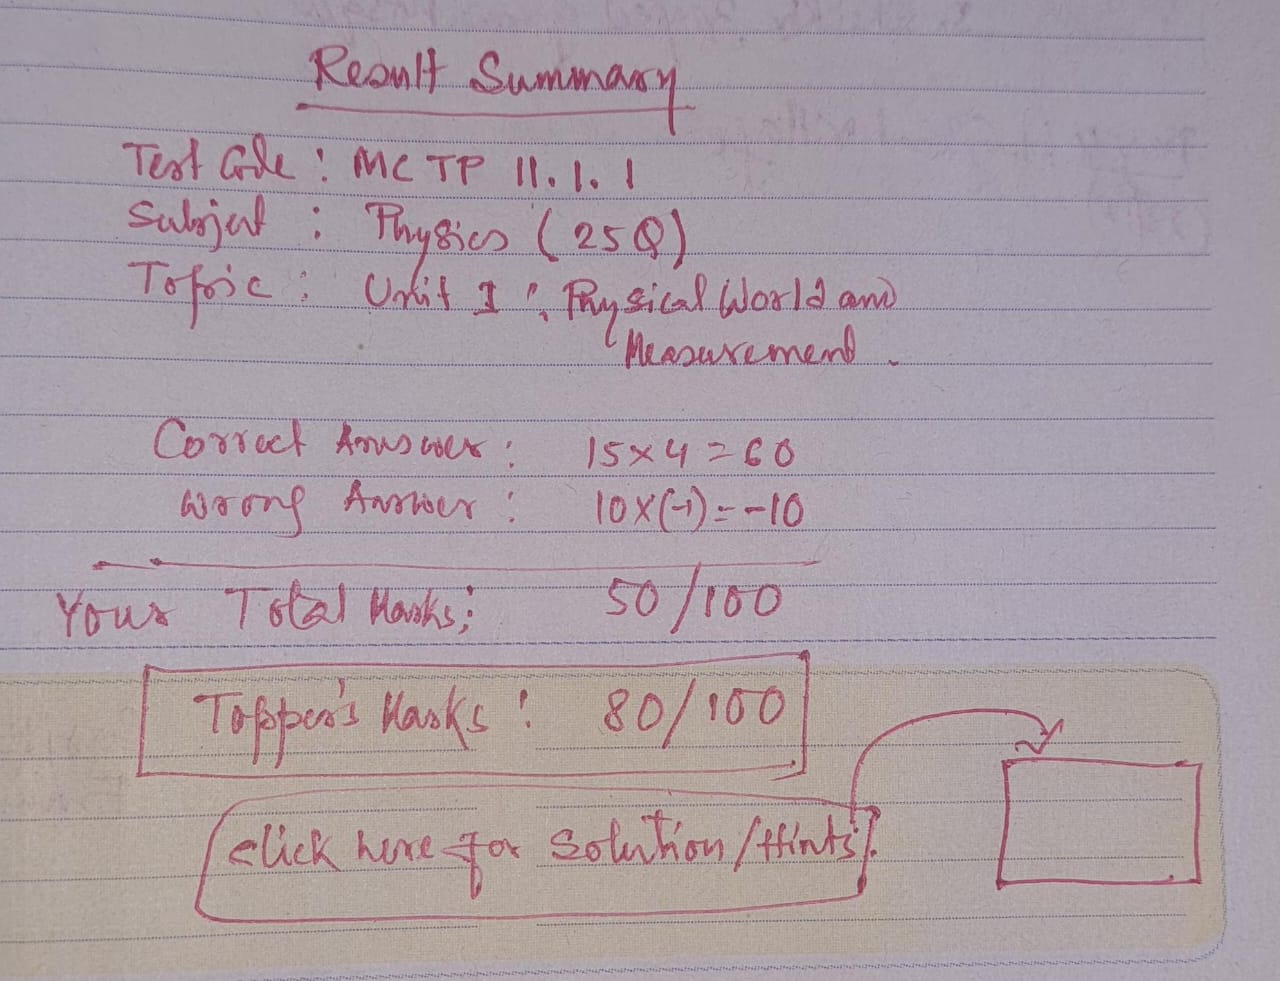 Result Summary
Test Code : MCTP 11.1.1
Subject : Physics (25Q)
Topic : Unit I : Physical World and
Measurement.
Correct Answer : 15×4=60
Wrong Answer : 10×(-1)=-10
Your Total Marks: 50/100
Topper's Marks : 80/100
Click here for Solution/Hints